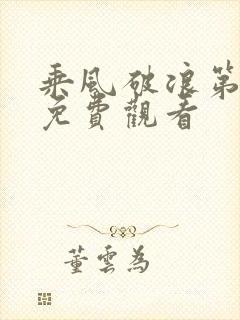 乘风破浪第
免費觀看
董雲為